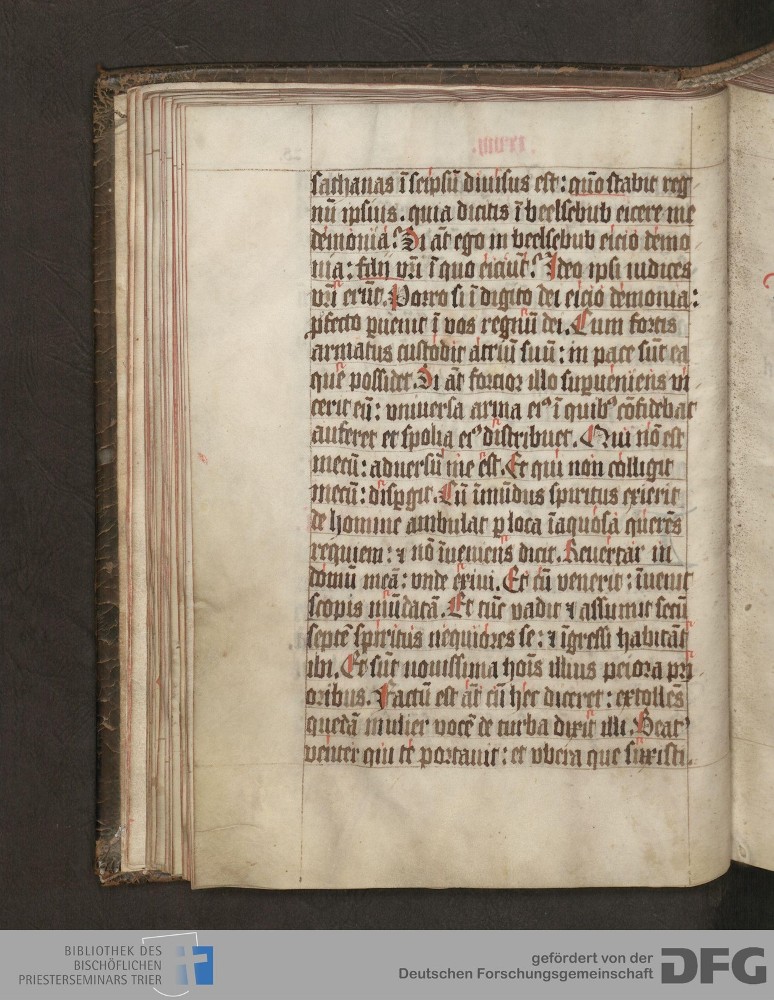 sathanas ī seipsū diuisus est: quō stabit reg
nū ipsius. quia dicitis ī beelsebub eicere me
demonia. Si āt ego in beelsebub eicio demo
nia: filij vr̄i ī quo eiciūt? Ideo ipsi iudices
vr̄i erūt. Porro si ī digito dei eicio demonia:
ꝓfecto ꝑuenit ī vos regnū dei. Cum fortis
armatus custodit atriū suū: in pace sūt ea
que possidet. Si āt forcior illo suꝑueniens vi
cerit eū: vniuersa arma eiꝰ ī quibꝰ cōfidebat
auferet et spolia eiꝰ distribuet. Qui nō est
mecū: aduersū me est. Et qui non colligit
mecū: disꝑgit. Cū īmūdus spiritus exierit
de homine ambulat ꝑ loca īaquosa querēs
requiem: ⁊ nō īueniens dicit. Reuertar in
domū meā: vnde exiui. Et cū venerit: īuenit
scopis mūdatā. Et tūc vadit ⁊ assumit secū
septē spiritus nequiores se: ⁊ īgressi habitāt
ibi. Et sūt nouissima hoīs illius peiora pri
oribus. Factū est āt cū hec diceret: extollēs
quedā mulier vocē de turba dixit illi. Beatꝰ
venter qui te portauit: et vbera que suxisti.
BIBLIOTHEK DES
BISCHÖFLICHEN
PRIESTERSEMINARS TRIER
gefördert von der
Deutschen Forschungsgemeinschaft
DFG